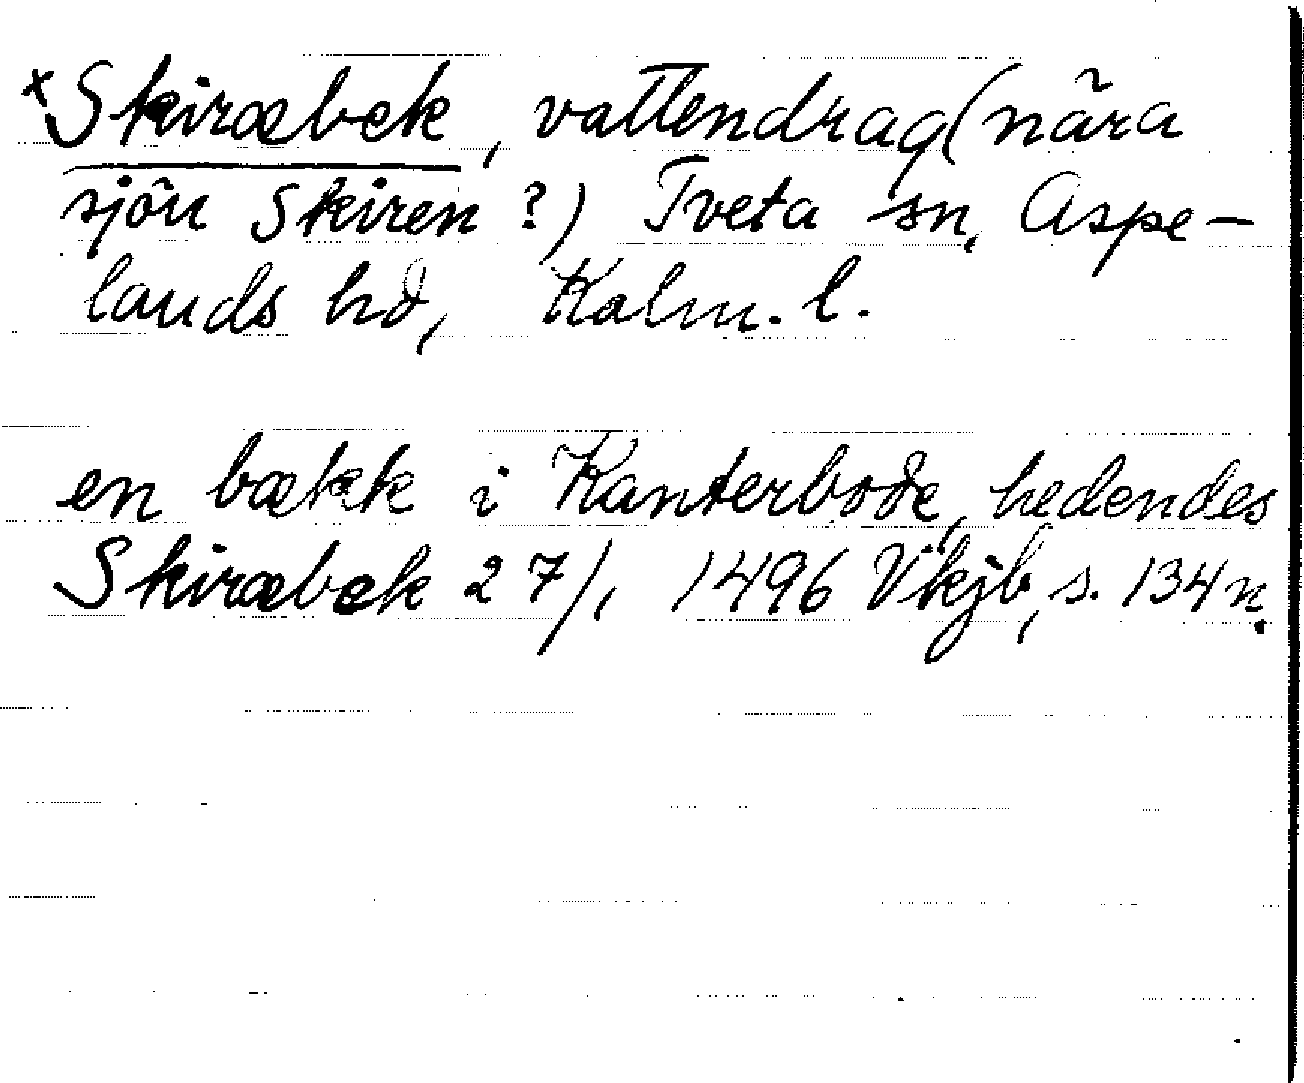 ˣSkiræbek, vattendrag (nära
sjön Skiren?) Tveta sn, Aspe-
lands hd, Kalm. l.
en bækk i Kanterbode, hedendes
Skiræbek 27/1 1496 Vkjb, s. 134 n.